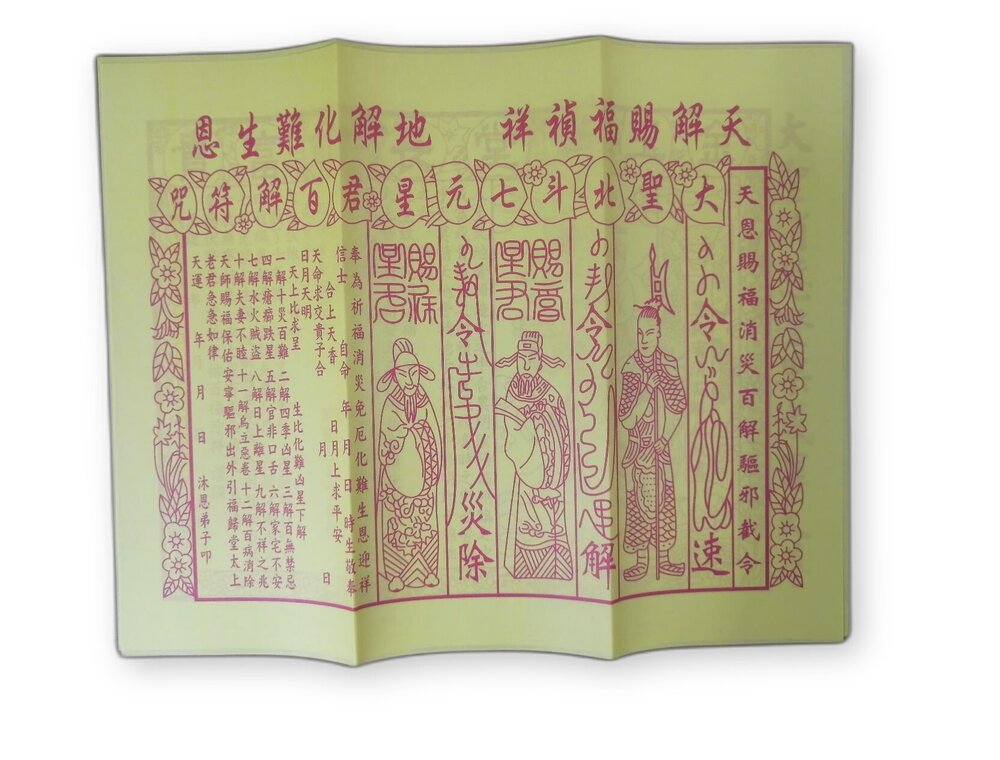 天解賜福禎祥 地解化難生恩
大聖北斗七元星君百解符咒
天恩賜福消災百解驅邪截令
令 速
令 解
賜 星君
令 災除
賜 星君
奉為祈福消災免厄化難生恩迎祥
信士 自命 年 月 日 時生敬奉
合上天香 日月上求平安
天命求交貴子合 月 日
日月天明
天上比求呈 生比化難凶星下解
一解十災百難 二解四季凶星 三解百無禁忌
四解瘡癤跌星 五解官非口舌 六解家宅不安
七解水火賊盜 八解日上難星 九解不祥之兆
十解夫妻不睦 十一解烏立惡卷 十二解百病消除
天師賜福保佑安寧驅邪出外引福歸堂太上
老君急急如律
天運 年 月 日 沐恩弟子叩